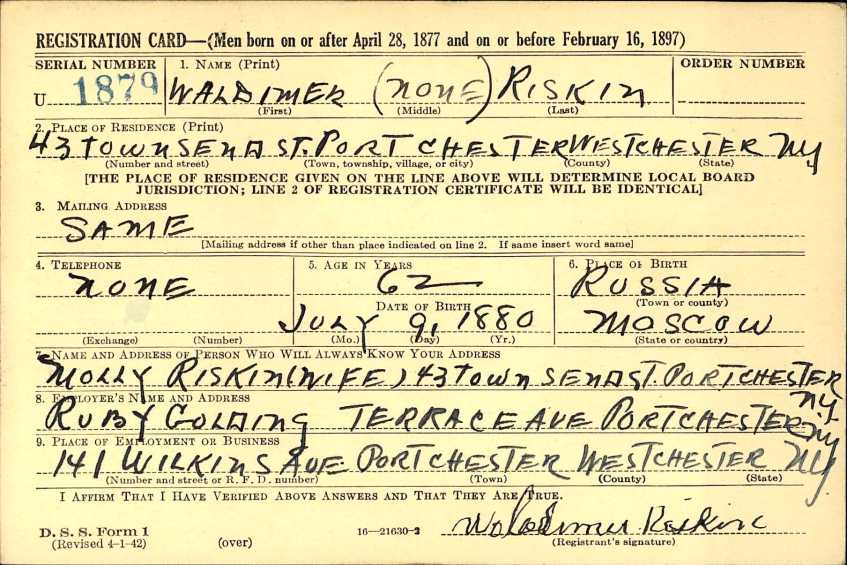 REGISTRATION CARD—(Men born on or after April 28, 1877 and on or before February 16, 1897)
SERIAL NUMBER 1. NAME (Print) ORDER NUMBER
U 1879 WALDIMER (NONE) RISKIN
(First) (Middle) (Last)
2. PLACE OF RESIDENCE (Print)
43 TOWNSEND ST. PORT CHESTER WESTCHESTER NY
(Number and street) (Town, township, village, or city) (County) (State)
[THE PLACE OF RESIDENCE GIVEN ON THE LINE ABOVE WILL DETERMINE LOCAL BOARD
JURISDICTION; LINE 2 OF REGISTRATION CERTIFICATE WILL BE IDENTICAL]
3. MAILING ADDRESS
SAME
[Mailing address if other than place indicated on line 2. If same insert word same]
4. TELEPHONE 5. AGE IN YEARS 6. PLACE OF BIRTH
NONE 62 RUSSIA
DATE OF BIRTH (Town or county)
JULY 9, 1880 MOSCOW
(Exchange) (Number) (Mo.) (Day) (Yr.) (State or country)
7. NAME AND ADDRESS OF PERSON WHO WILL ALWAYS KNOW YOUR ADDRESS
MOLLY RISKIN (WIFE) 43 TOWNSEND ST. PORTCHESTER N.Y.
8. EMPLOYER'S NAME AND ADDRESS
RUBY GOLDING TERRACE AVE PORTCHESTER NY
9. PLACE OF EMPLOYMENT OR BUSINESS
141 WILKINS AVE. PORTCHESTER WESTCHESTER NY
(Number and street or R. F. D. number) (Town) (County) (State)
I AFFIRM THAT I HAVE VERIFIED ABOVE ANSWERS AND THAT THEY ARE TRUE.
D. S. S. Form 1 16—21630-2 Waldimer Riskin
(Revised 4-1-42) (over) (Registrant's signature)